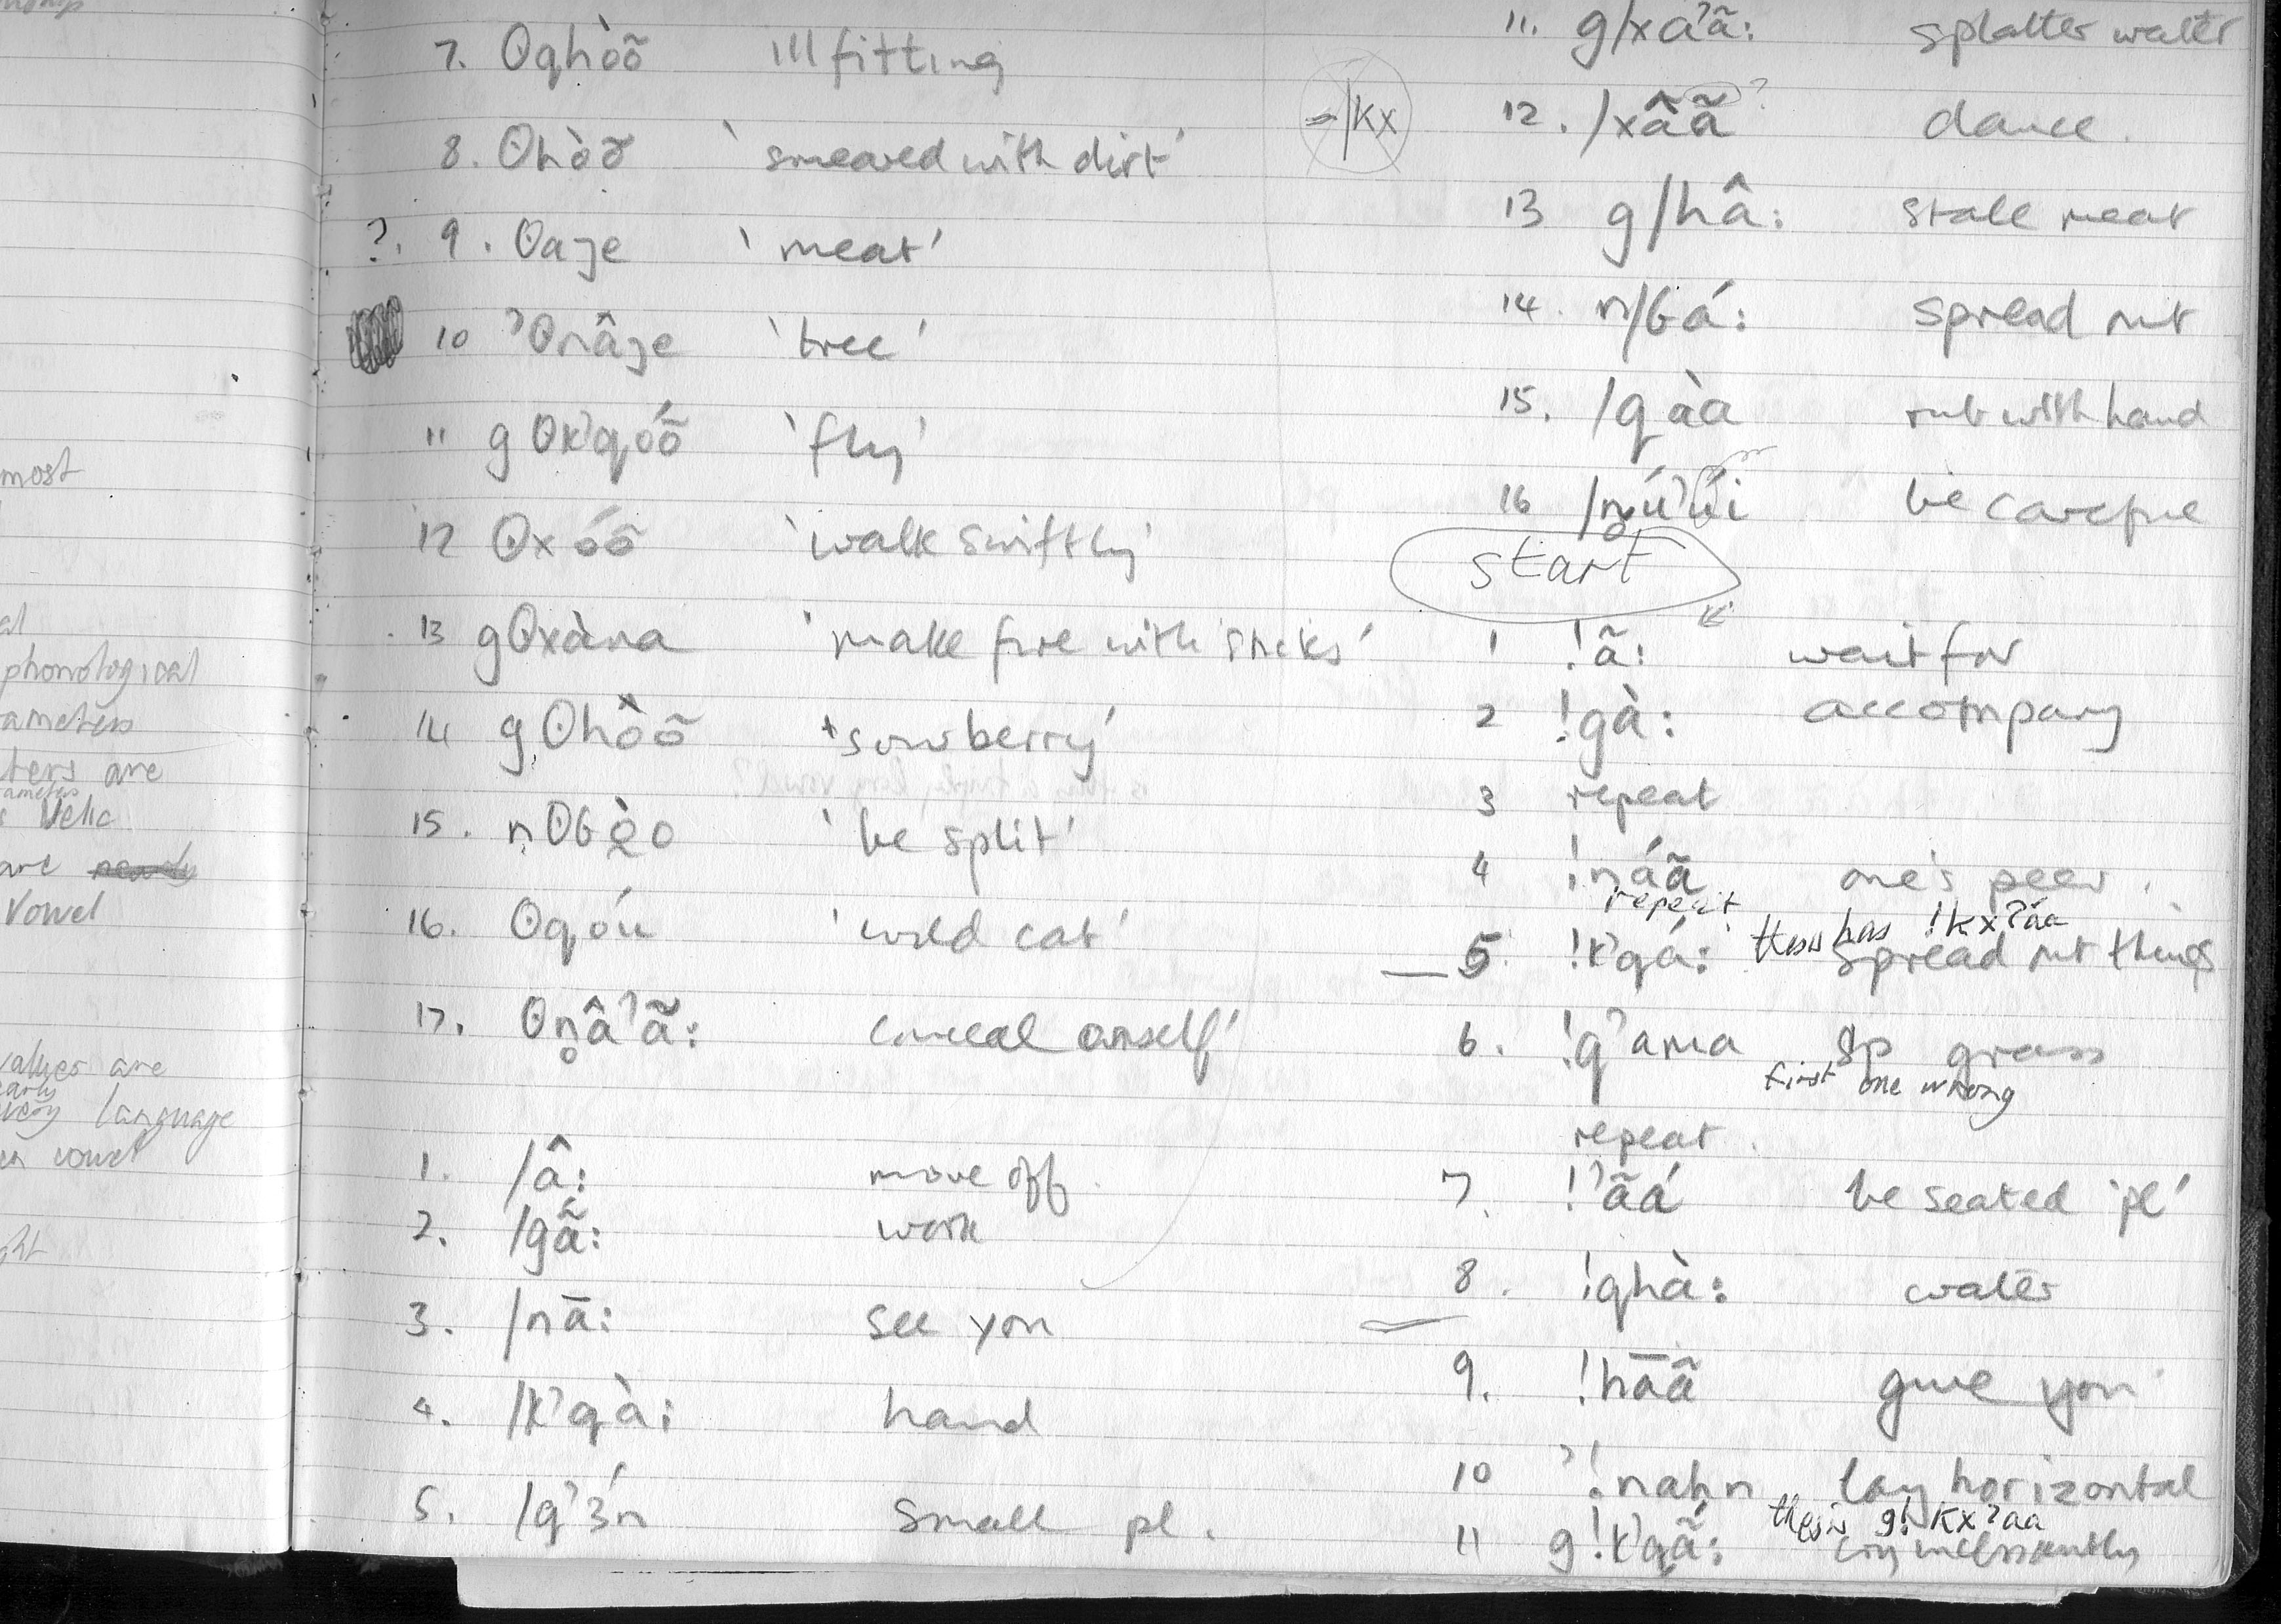 most
phonological
ters are
are
vowel
values are
language
7. ʘqhòõ ill fitting
8. ʘhòõ 'smeared with dirt'
?. 9. ʘaɟe 'meat'
10 ˀʘnâɟe 'tree'
11 gʘk'qóõ 'fly'
12 ʘxóõ 'walk swiftly'
13 gʘxàna 'make fire with sticks'
14 gʘhòõ 'sourberry'
15. nʘɢò̰o 'be split'
16. ʘqóu 'wild cat'
17. ʘn̥âˀã: conceal onself'
1. /â: move off.
2. /gã́: work
3. /nā: see you
4. /k'qà: hand
5. /qˀɜ́n small pl.
11. g/xáˀã: splatter water
⇒/kx 12. /xâã ? dance.
13 g/hâ: stale meat
14. n/ɢá: spread out
15. /qàa rub with hand
16 /n̥úˀúi be careful
start
1 !ã: wait for
2 !gà: accompany
3 repeat
4 !náã one's peer.
repeat
thesis has !kxʔáa
5. !k'qá: spread out things
6. !qˀama sp grass
first one wrong
repeat.
7. !ˀãá be seated 'pl'
8. !qhà: water
9. !hāâ give you
10 ˀ!nahn lay horizontal
thesis g!kxʔaa
11 g!k'qã́: cry incessantly